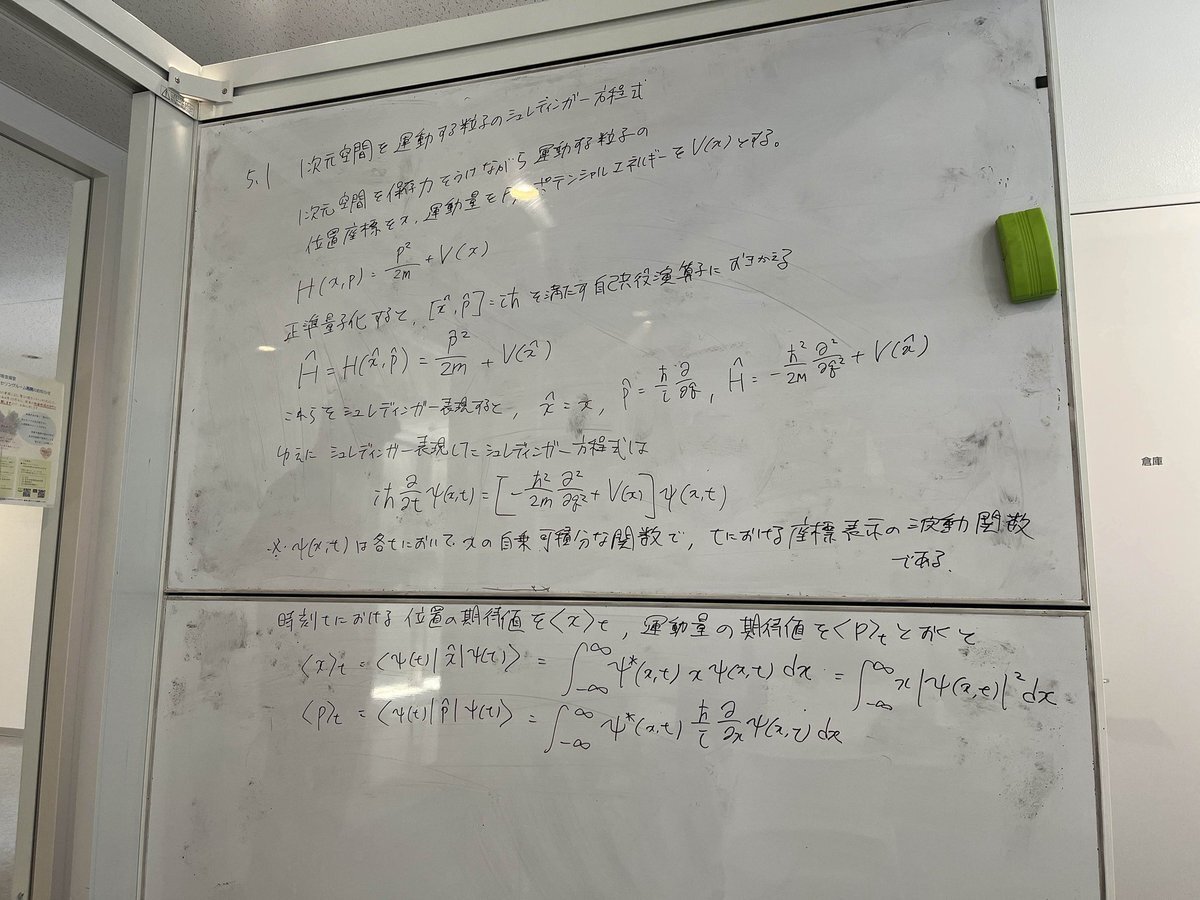 5.1 1次元空間を運動する粒子のシュレディンガー方程式
1次元空間を保存力をうけながら運動する粒子の
位置座標をx, 運動量をP, ポテンシャルエネルギーをV(x)とする。
H(x,p) = p²/2m + V(x)
正準量子化すると, [x̂,p̂]=iħ を満たす自己共役演算子におきかえる
Ĥ = H(x̂,p̂) = p̂²/2m + V(x̂)
これらをシュレディンガー表現すると, x̂ = x, p̂ = ħ/i ∂/∂q, Ĥ = -ħ²/2m ∂²/∂q² + V(x̂)
ゆえに シュレディンガー表現したシュレディンガー方程式は
iħ ∂/∂t ψ(x,t) = [-ħ²/2m ∂²/∂q² + V(x)] ψ(x,t)
※ ψ(x,t)は各tにおいて xの自乗可積分な関数で, tにおける座標表示の波動関数
である.
時刻tにおける 位置の期待値を⟨x⟩t, 運動量の期待値を⟨p⟩tとおくと
⟨x⟩t = ⟨ψ(t)|x̂|ψ(t)⟩ = ∫_{-∞}^{∞} ψ*(x,t) x ψ(x,t) dx = ∫_{-∞}^{∞} x|ψ(x,t)|² dx
⟨p⟩t = ⟨ψ(t)|p̂|ψ(t)⟩ = ∫_{-∞}^{∞} ψ*(x,t) ħ/i ∂/∂x ψ(x,t) dx
倉庫